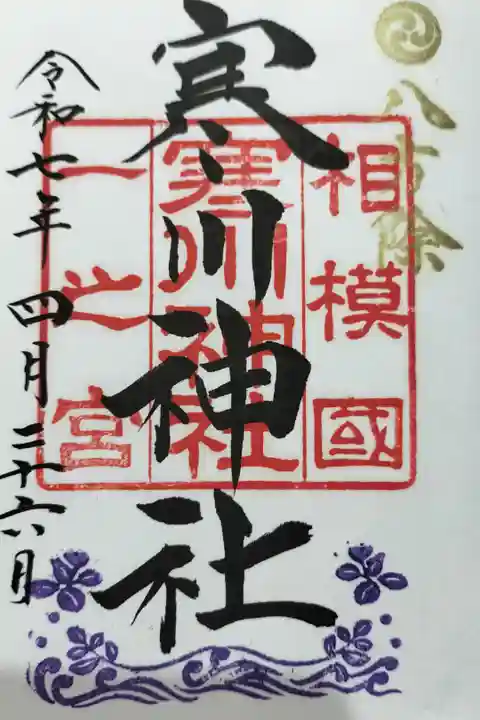 八方除
相模國
寒川神社
一之宮
寒川神社
令和七年四月二十六日